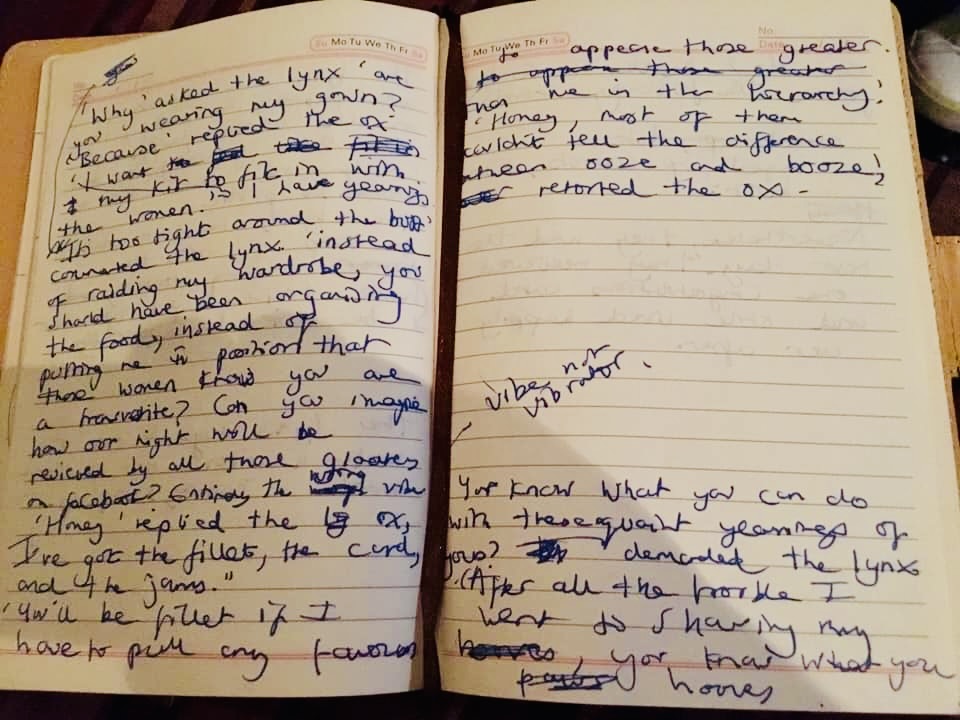 Su Mo Tu We Th Fr Sa
'Why' asked the lynx 'are
you wearing my gown?
'Because' replied the ox
'I want to
my kit to fit in with
the women.' I have yearnings
'It's too tight around the bust'
commented the lynx. 'instead
of raiding my wardrobe, you
should have been organising
the food, instead of
putting me in position that
those women know you are
a transvestite? Can you imagine
how our night will be
recieved by all those gloaters
on facebook? Entirely the wrong vibe
'Honey' replied the ox,
I've got the fillet, the curd,
and the jams."
'You'll be fillet if I
have to pull any favours
No.
Date
Su Mo Tu We Th Fr Sa
to appease those greater.
to appease those greater
than me in the hierarchy.'
'Honey, most of them
couldn't tell the difference
between ooze and booze!'
retorted the ox -
vibe not
vibrator.
You know what you can do
with these quaint yearnings of
yours? demanded the lynx
'After all the trouble I
went to sharing my
hooves, you know what you
paws hooves